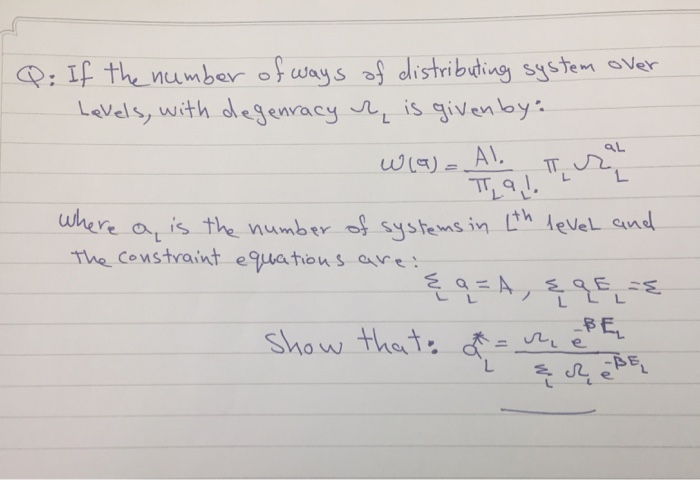 Q: If the number of ways of distributing system over
Levels, with degenracy Ω_L is given by:
W(a) = A! / π_L a_L! π_L Ω_L^aL
where a_L is the number of systems in Lth level and
the constraint equations are:
Σ_L a_L = A, Σ_L a_L E_L = Σ
Show that: a*_L = Ω_L e^-βE_L / Σ_L Ω_L e^-βE_L